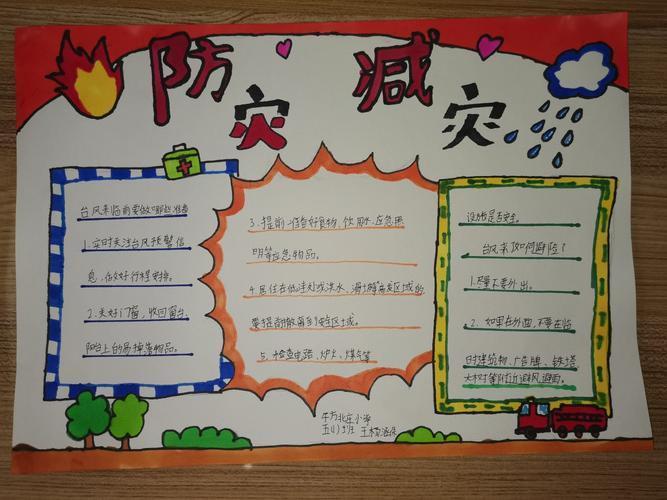 防灾 减灾
台风来临前要做哪些准备
1.实时关注台风预警信
息,做好行程安排。
2.关好门窗,收回窗台、
阳台上的易掉落物品。
3.提前准备好食物、饮用水、应急照
明等应急物品。
4.居住在低洼处或洪水、
要提前撤离到安全区域。
5、检查电路、炉火、煤气等
设施是否安全。
台风来了如何避险?
1.尽量不要外出。
2、如果在外面,不要在临
时建筑物、广告牌、铁塔
大树等附近避风避雨。
小学
五(1)班 王